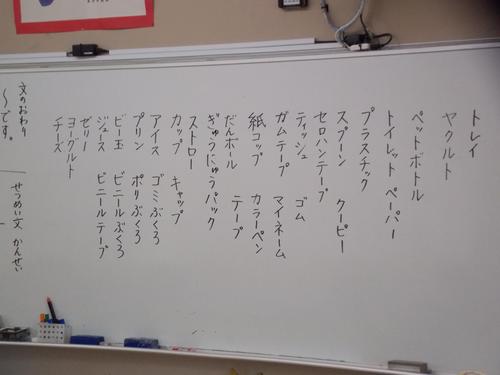 トレイ
ヤクルト
ペットボトル
トイレット ペーパー
プラスチック
スプーン クーピー
セロハンテープ
ティッシュ ゴム
ガムテープ マイネーム
紙コップ カラーペン
だんボール テープ
ぎゅうにゅうパック
ストロー
カップ キャップ
アイス ゴミぶくろ
プリン ポリぶくろ
ビー玉 ビニールぶくろ
ジュース ビニールテープ
ゼリー
ヨーグルト
チーズ
文のおわり
〜です。
せつめい文 かんせい